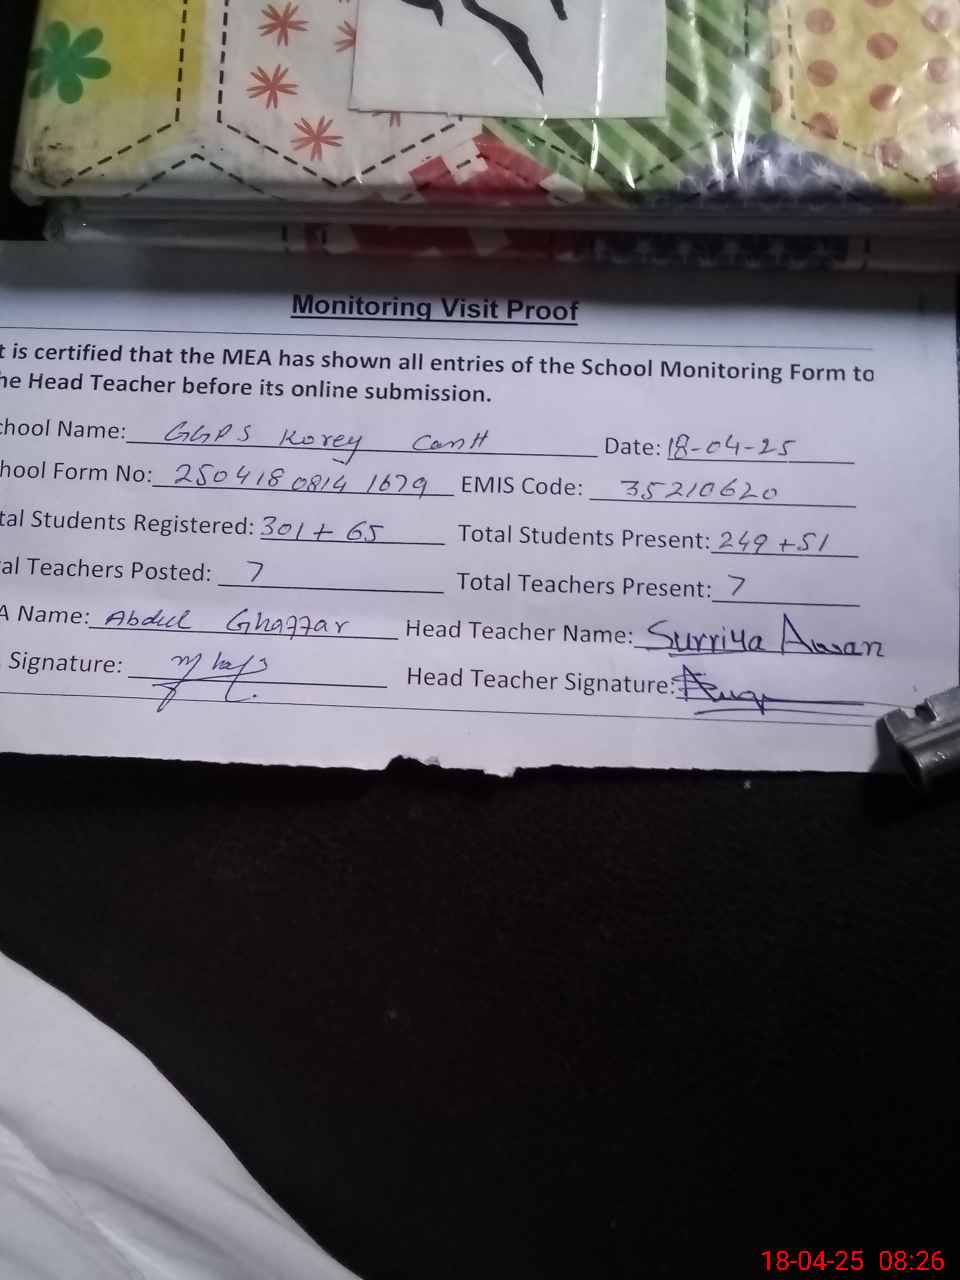 Monitoring Visit Proof
t is certified that the MEA has shown all entries of the School Monitoring Form to
he Head Teacher before its online submission.
chool Name: GGPS Korey Cantt Date: 18-04-25
hool Form No: 250418 0814 1679 EMIS Code: 35210620
tal Students Registered: 301 + 65 Total Students Present: 249 + 51
al Teachers Posted: 7 Total Teachers Present: 7
A Name: Abdul Ghaffar Head Teacher Name: Surriya Awan
Signature: Head Teacher Signature:
18-04-25 08:26